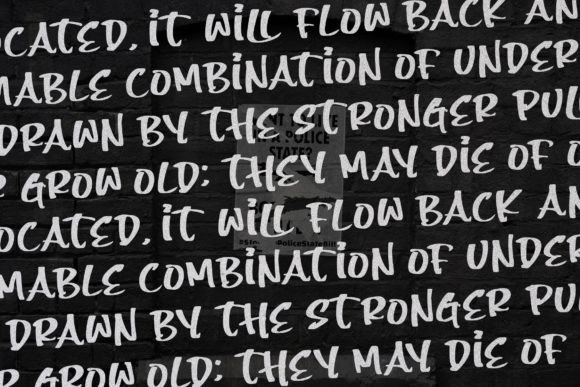 OCATED, IT WILL FLOW BACK AN
MABLE COMBINATION OF UNDER
DRAWN BY THE STRONGER PUL
GROW OLD; THEY MAY DIE OF O
OCATED, IT WILL FLOW BACK AN
MABLE COMBINATION OF UNDER
DRAWN BY THE STRONGER PU
GROW OLD; THEY MAY DIE OF
IN A POLICE
STATE?